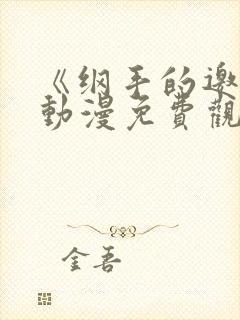 《纲手的邀
動漫免費觀
金吾